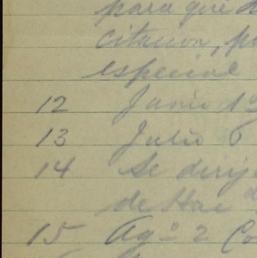 para que
citacion, p
especial
12 Junio 1º
13 Julio 6
14 Se dirij
de Hac
15 Agº 2 Co